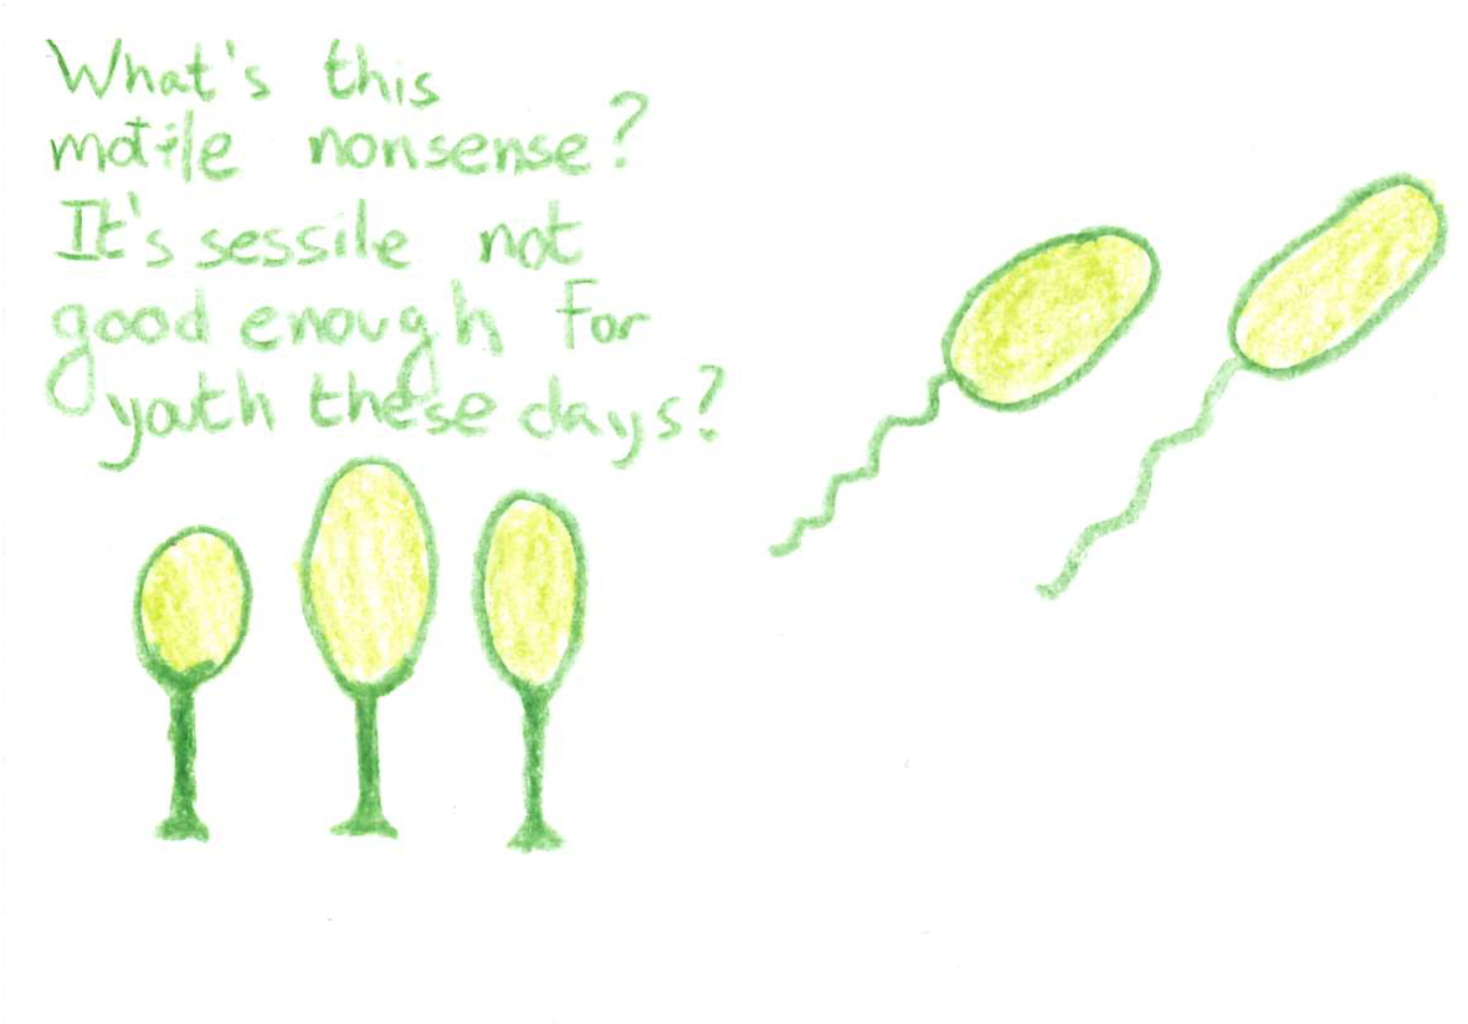 What's this
motile nonsense?
It's sessile not
good enough for
youth these days?